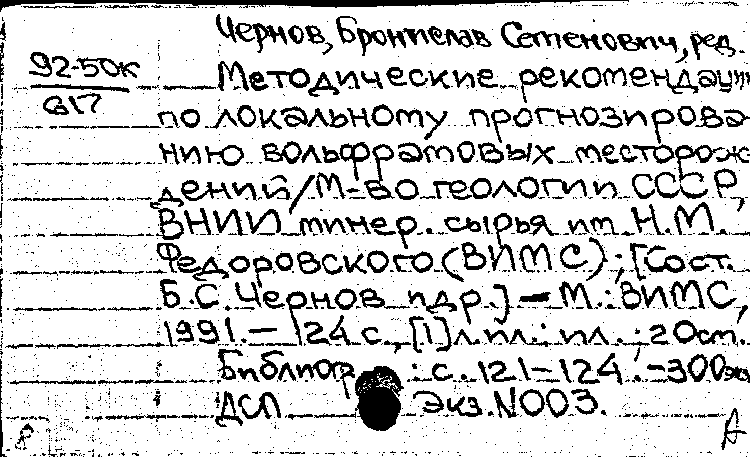 Чернов, Бронислав Семенович, ред.
92-50к
G17
Методические рекомендации
по локальному прогнозирова-
нию вольфрамовых месторож-
дений/М-во геологии СССР,
ВНИИ минер. сырья им. Н.М.
Федоровского (ВИМС); [Сост.
Б.С. Чернов и др.] — М.: ВИМС,
1991. — 124 с., [1] л. ил.: ил.; 20 см.
Библиогр.: с. 121-124. - 300 экз
ДСП Экз. N003.